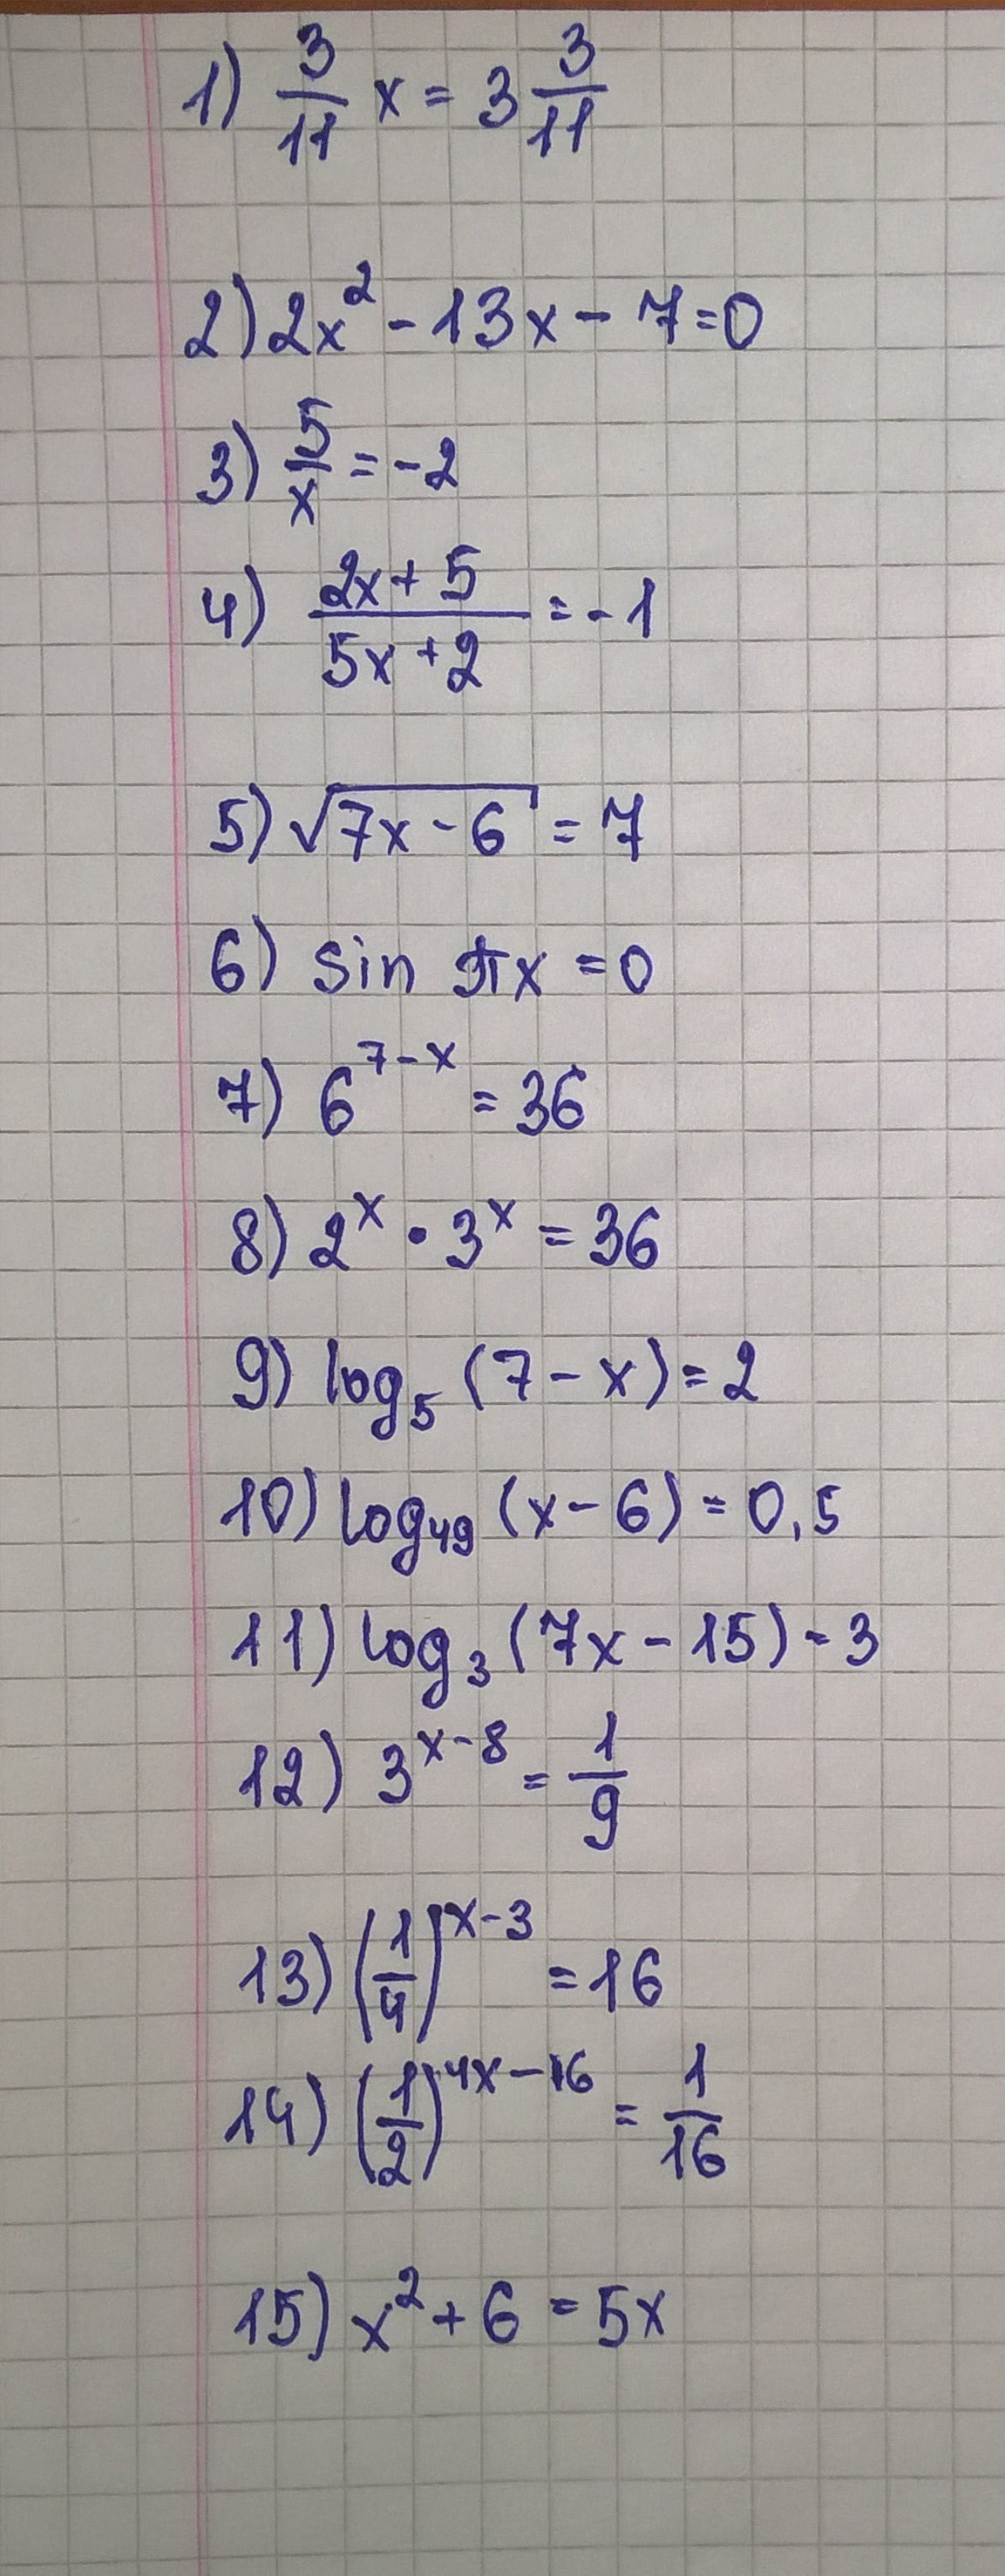 1) 3/11 x = 3 3/11
2) 2x² - 13x - 7 = 0
3) 5/x = -2
4) (2x + 5)/(5x + 2) = -1
5) √(7x - 6) = 7
6) sin πx = 0
7) 6^(7-x) = 36
8) 2^x · 3^x = 36
9) log₅ (7 - x) = 2
10) log₄₉ (x - 6) = 0,5
11) log₃ (7x - 15) = 3
12) 3^(x-8) = 1/9
13) (1/4)^(x-3) = 16
14) (1/2)^(4x-16) = 1/16
15) x² + 6 = 5x